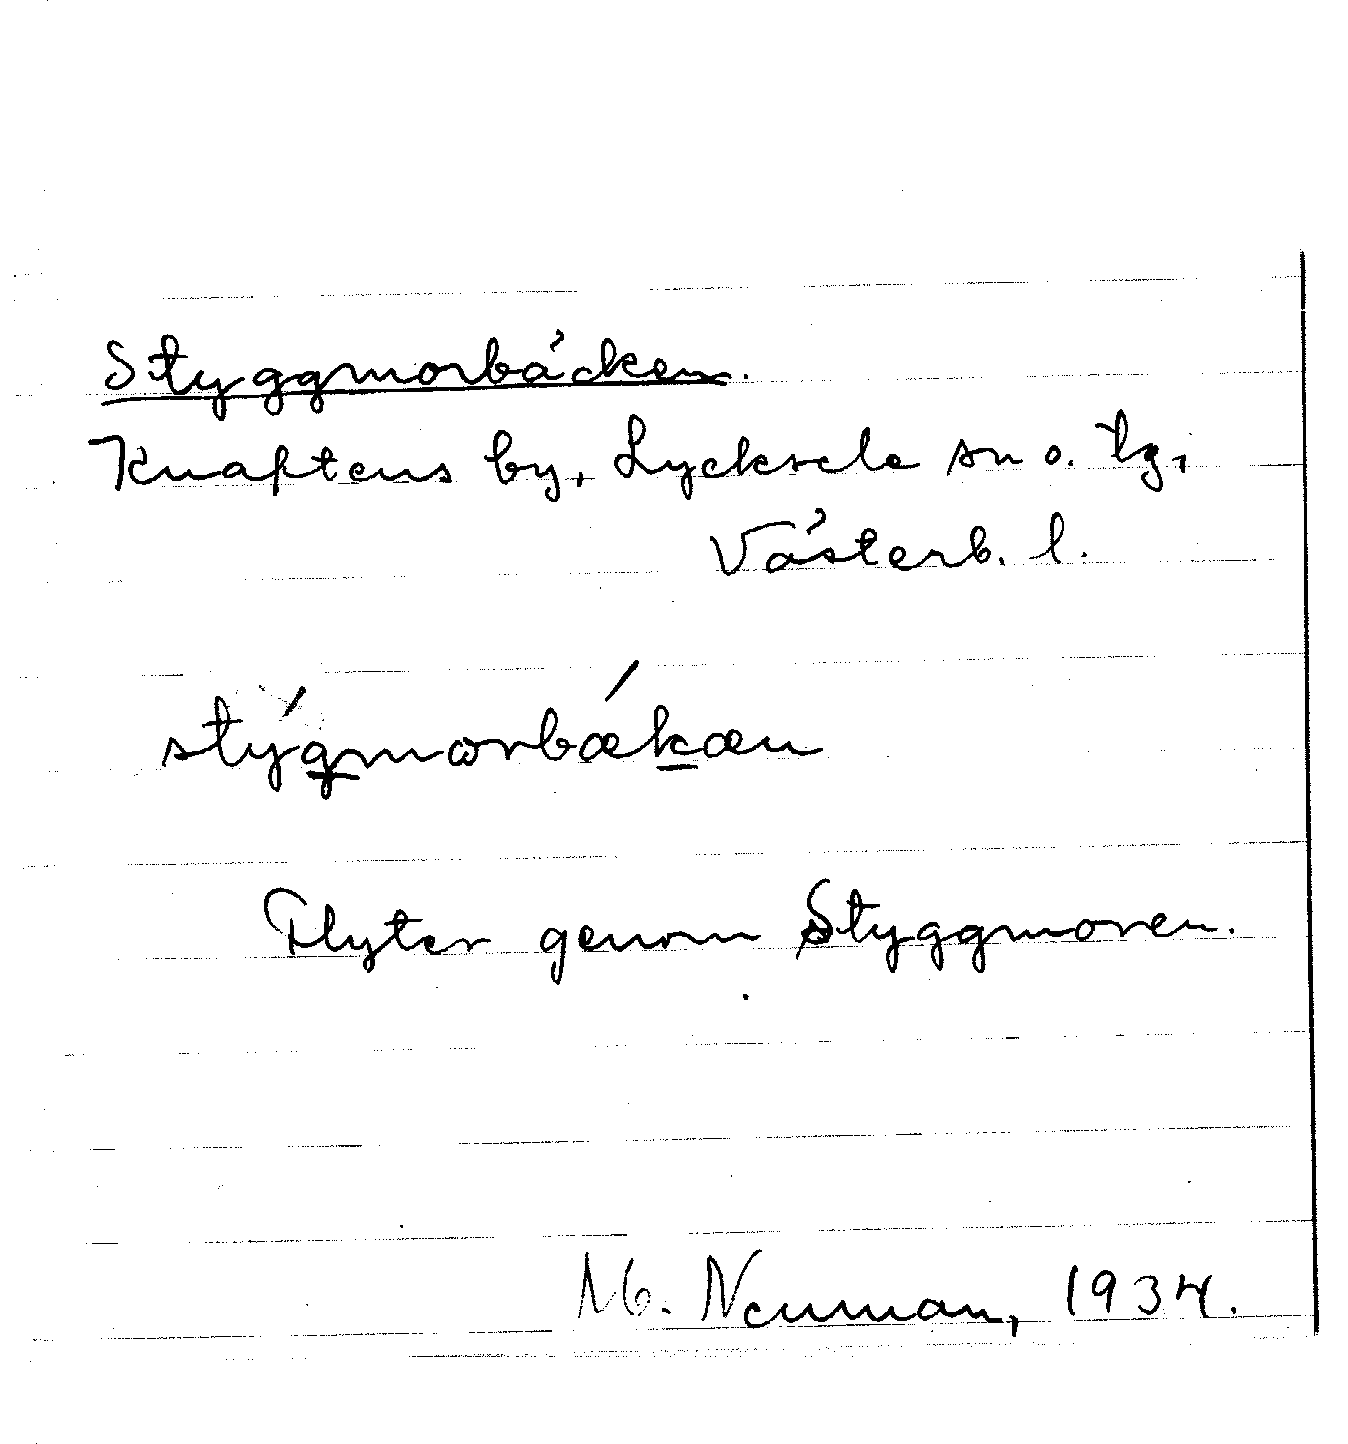 Styggmorbäcken.
Knaftens by, Lycksele sn o. tg,
Västerb. l.
stýgmorbǽkæn
Flyter genom Styggmoren.
M. Neuman, 1934.